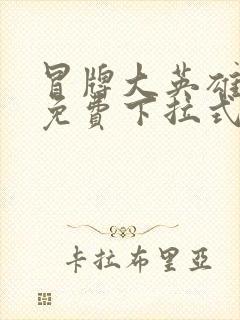 冒牌大英雄
免費下拉式
卡拉布里亞